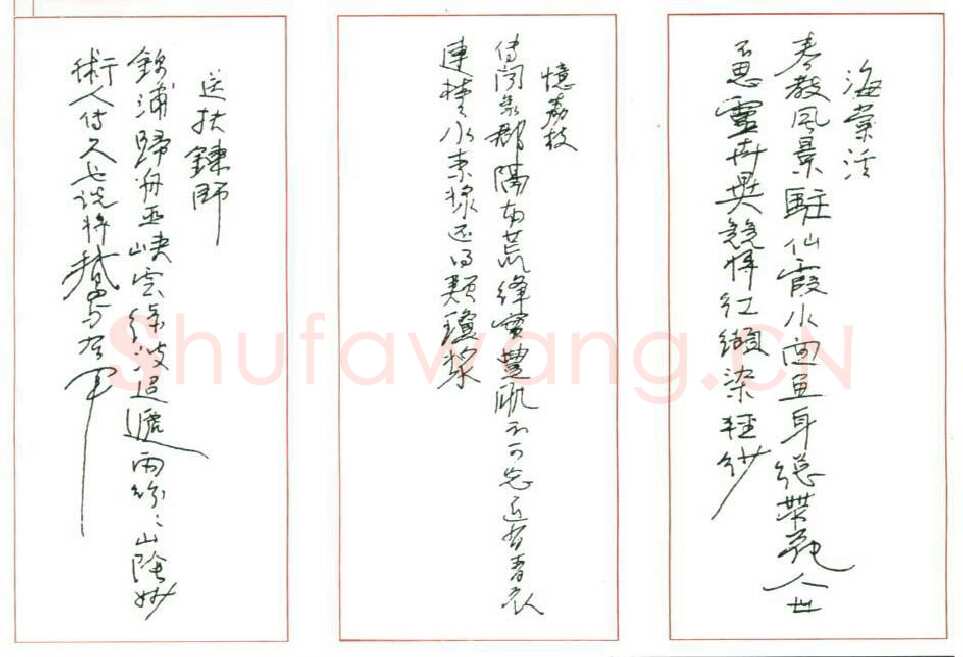 海棠溪
春教風景駐仙霞水面魚身總帶花人世
不思靈卉異競將紅纈染輕紗
憶荔枝
傳聞象郡隔南荒絳實豐肌不可忘近有青衣
連楚水素漿還得類瓊漿
送扶鍊師
錦浦歸舟巫峽雲綠波迢遞雨紛〻山陰妙
術人傳久也說將鵝與右軍
Shufawang.CN